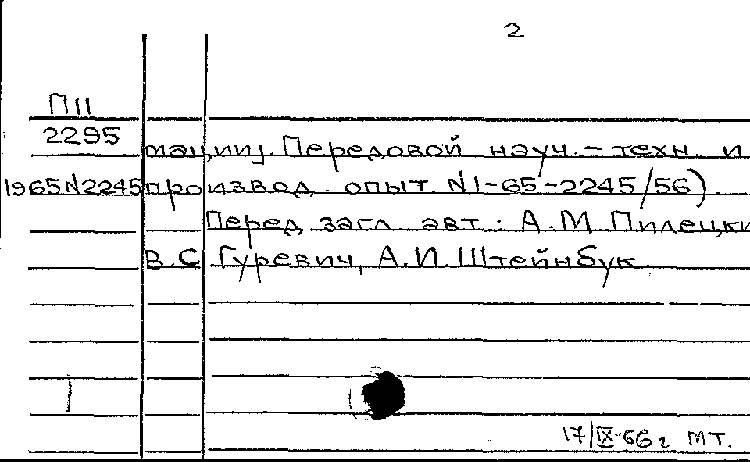 2
П11
2295
мации). Передовой науч.-техн. и
1965 N2245 производ. опыт. N1-65-2245/56).
Перед загл. авт.: А.М. Пилецки
В.С. Гуревич, А.И. Штейнбук.
17/IX-66г. МТ.